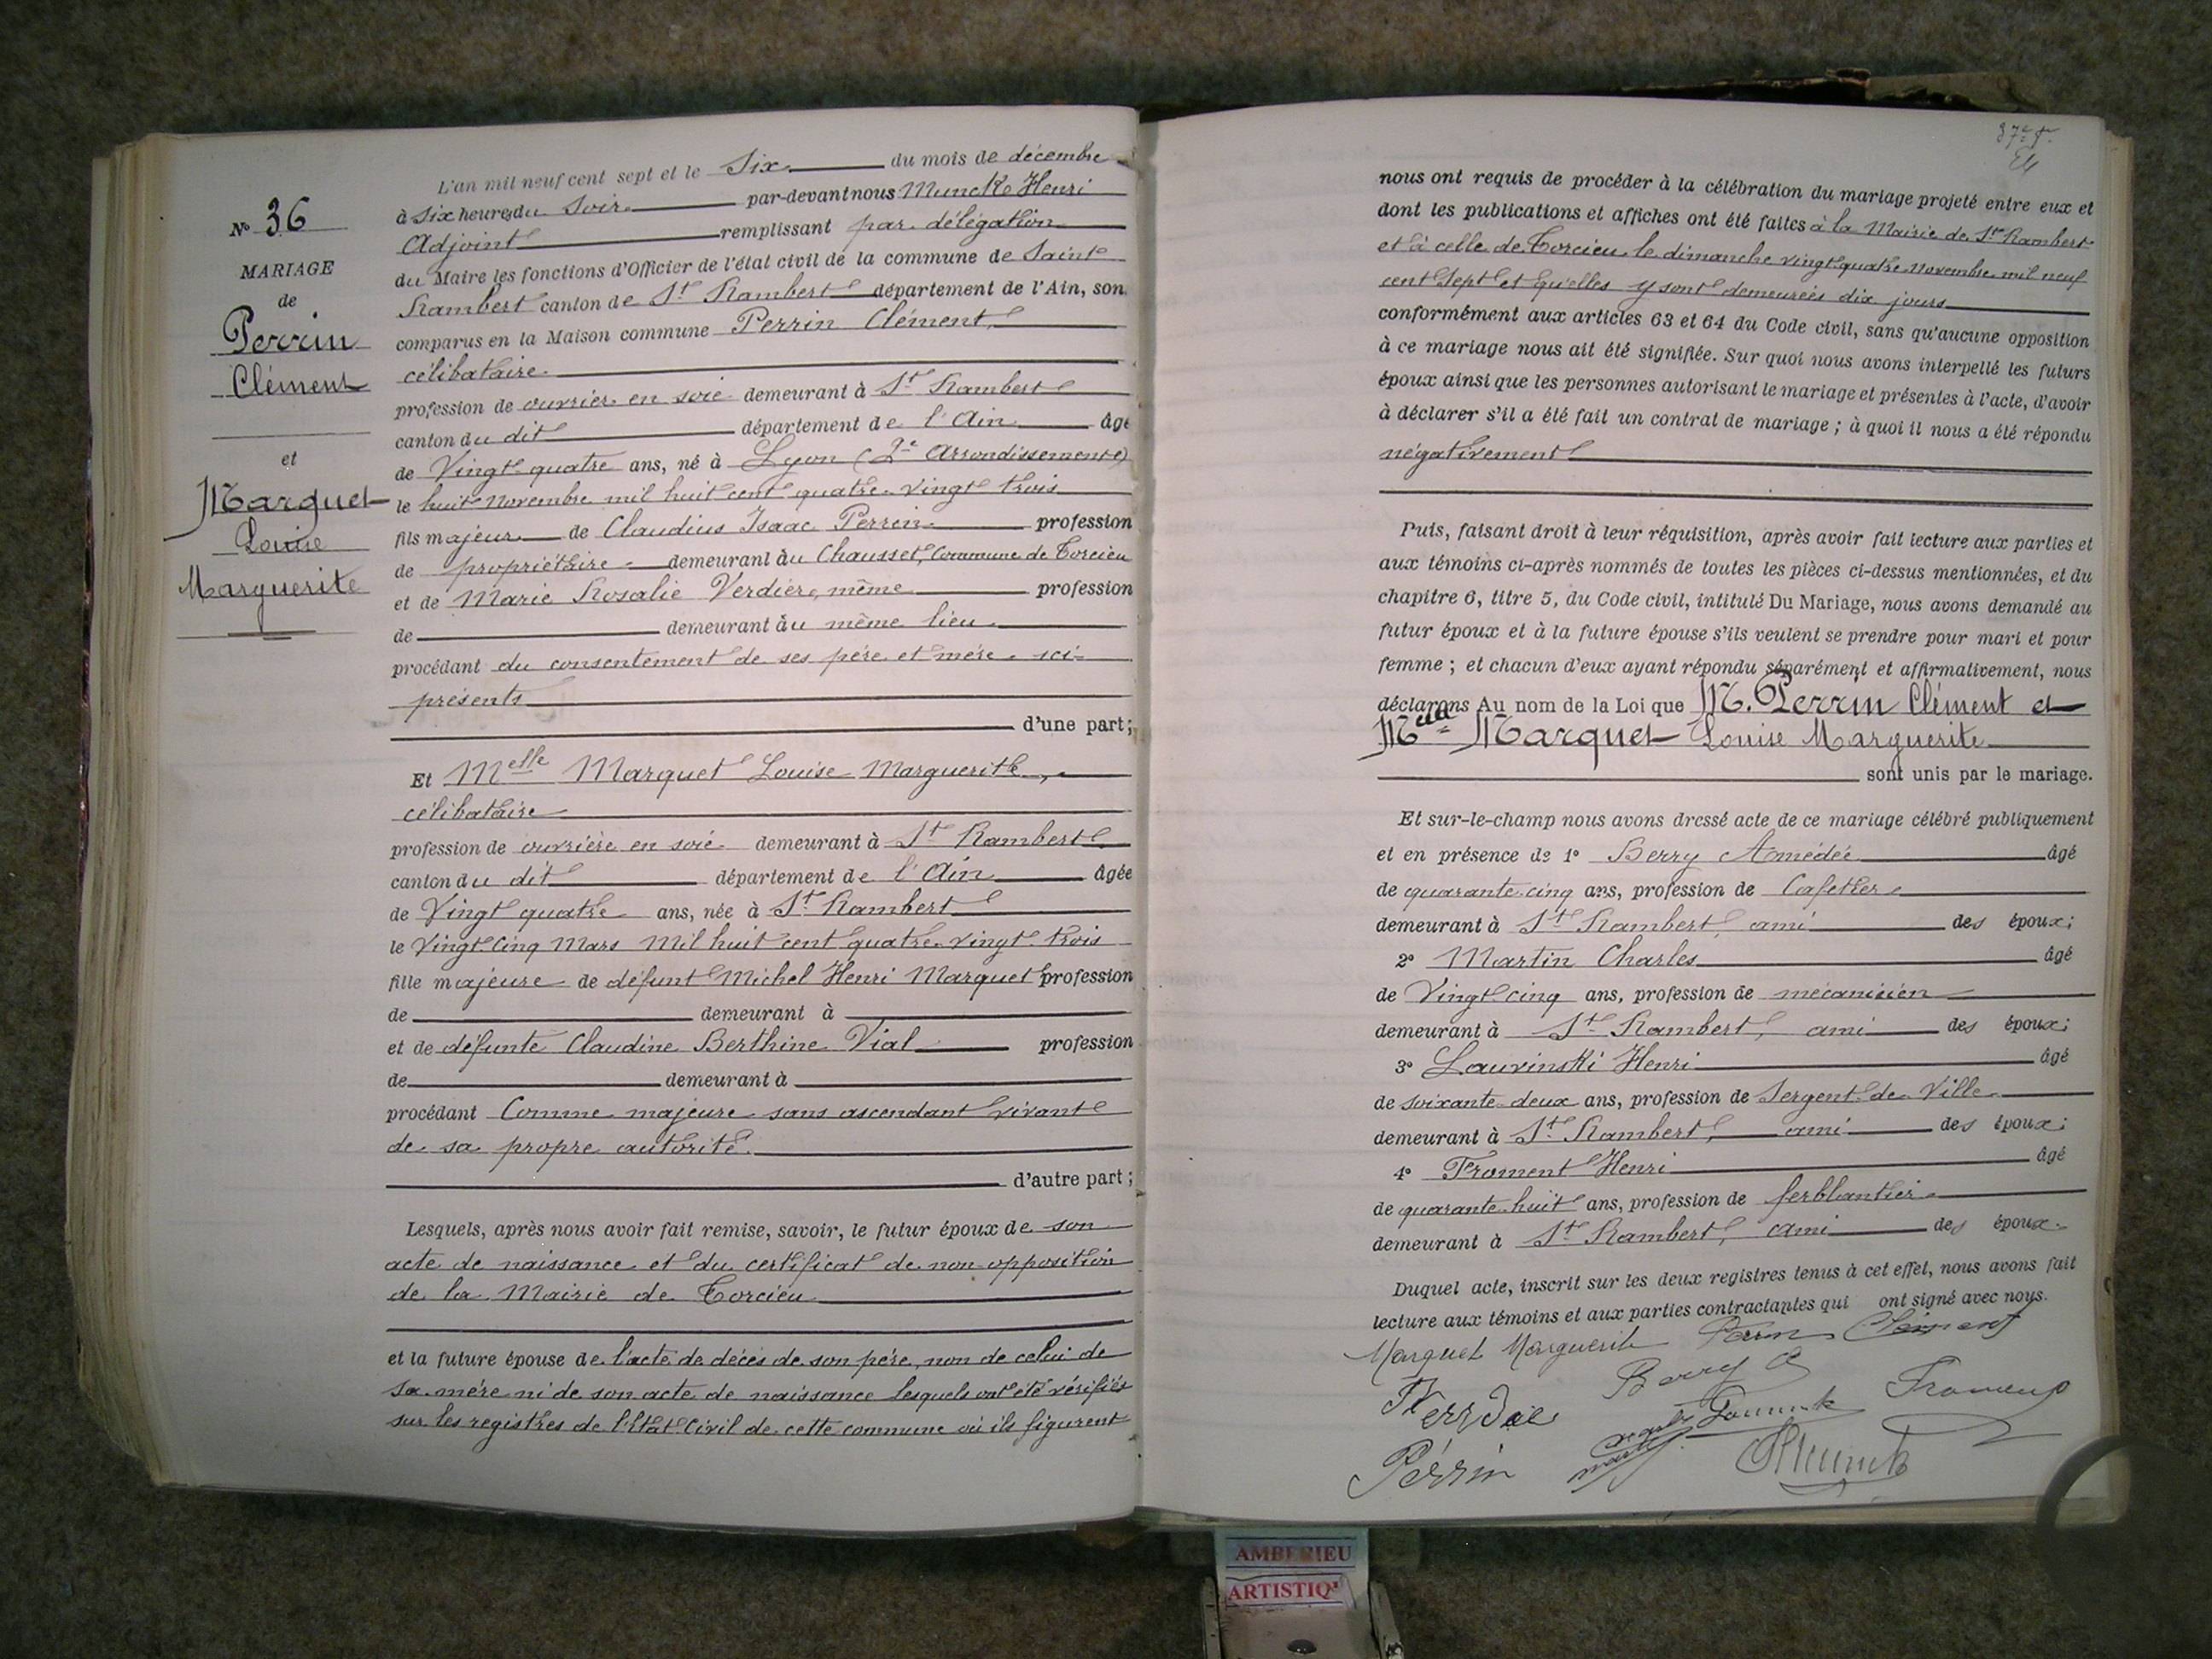 N° 36
MARIAGE
de
Perrin
Clément
et
Marquet
Louise
Marguerite
L'an mil neuf cent sept et le Six du mois de décembre
à six heures du Soir par-devant nous Muncke Henri
Adjoint remplissant par délégation
du Maire les fonctions d'Officier de l'état civil de la commune de Saint
Rambert canton de St Rambert département de l'Ain, son
comparus en la Maison commune Perrin Clément,
célibataire
profession de ouvrier en soie demeurant à St Rambert
canton du dit département de l'Ain âgé
de Vingt quatre ans, né à Lyon (2e Arrondissement)
le huit Novembre mil huit cent quatre-vingt trois
fils majeur de Claudius Isaac Perrin profession
de propriétaire demeurant au Chausset, Commune de Torcieu
et de Marie Rosalie Verdier, même profession
de demeurant au même lieu
procédant du consentement de ses père et mère ici
présents
d'une part;
Et Melle Marquet Louise Marguerite,
célibataire
profession de ouvrière en soie demeurant à St Rambert
canton du dit département de l'Ain âgée
de Vingt quatre ans, née à St Rambert
le Vingt-Cinq Mars Mil huit cent quatre-vingt-trois
fille majeure de défunt Michel Henri Marquet profession
de demeurant à
et de défunte Claudine Berthine Vial profession
de demeurant à
procédant Comme majeure sans ascendant vivant
de sa propre autorité.
d'autre part;
Lesquels, après nous avoir fait remise, savoir, le futur époux de son
acte de naissance et du certificat de non-opposition
de la Mairie de Torcieu
et la future épouse de l'acte de décès de son père, non de celui de
sa mère ni de son acte de naissance lesquels ont été vérifiés
sur les registres de l'Etat Civil de cette commune où ils figurent
nous ont requis de procéder à la célébration du mariage projeté entre eux et
dont les publications et affiches ont été faites à la Mairie de St Rambert
et à celle de Torcieu le dimanche vingt-quatre Novembre mil neuf
cent Sept et qu'elles y sont demeurées dix jours
conformément aux articles 63 et 64 du Code civil, sans qu'aucune opposition
à ce mariage nous ait été signifiée. Sur quoi nous avons interpellé les futurs
époux ainsi que les personnes autorisant le mariage et présentes à l'acte, d'avoir
à déclarer s'il a été fait un contrat de mariage; à quoi il nous a été répondu
négativement
Puis, faisant droit à leur réquisition, après avoir fait lecture aux parties et
aux témoins ci-après nommés de toutes les pièces ci-dessus mentionnées, et du
chapitre 6, titre 5, du Code civil, intitulé Du Mariage, nous avons demandé au
futur époux et à la future épouse s'ils veulent se prendre pour mari et pour
femme; et chacun d'eux ayant répondu séparément et affirmativement, nous
déclarons Au nom de la Loi que M. Perrin Clément et
Melle Marquet Louise Marguerite
sont unis par le mariage.
Et sur-le-champ nous avons dressé acte de ce mariage célébré publiquement
et en présence de 1° Berry Amédée âgé
de quarante-cinq ans, profession de Cafetier
demeurant à St Rambert, ami des époux;
2° Martin Charles âgé
de Vingt-cinq ans, profession de mécanicien
demeurant à St Rambert, ami des époux;
3° Lauvinski Henri âgé
de soixante-deux ans, profession de Sergent de Ville
demeurant à St Rambert, ami des époux;
4° Froment Henri âgé
de quarante-huit ans, profession de ferblantier
demeurant à St Rambert, ami des époux.
Duquel acte, inscrit sur les deux registres tenus à cet effet, nous avons fait
lecture aux témoins et aux parties contractantes qui ont signé avec nous.
Marquet Marguerite Perrin Clément
Berry A Froment
Perrin
AMBERIEU
ARTISTIQ